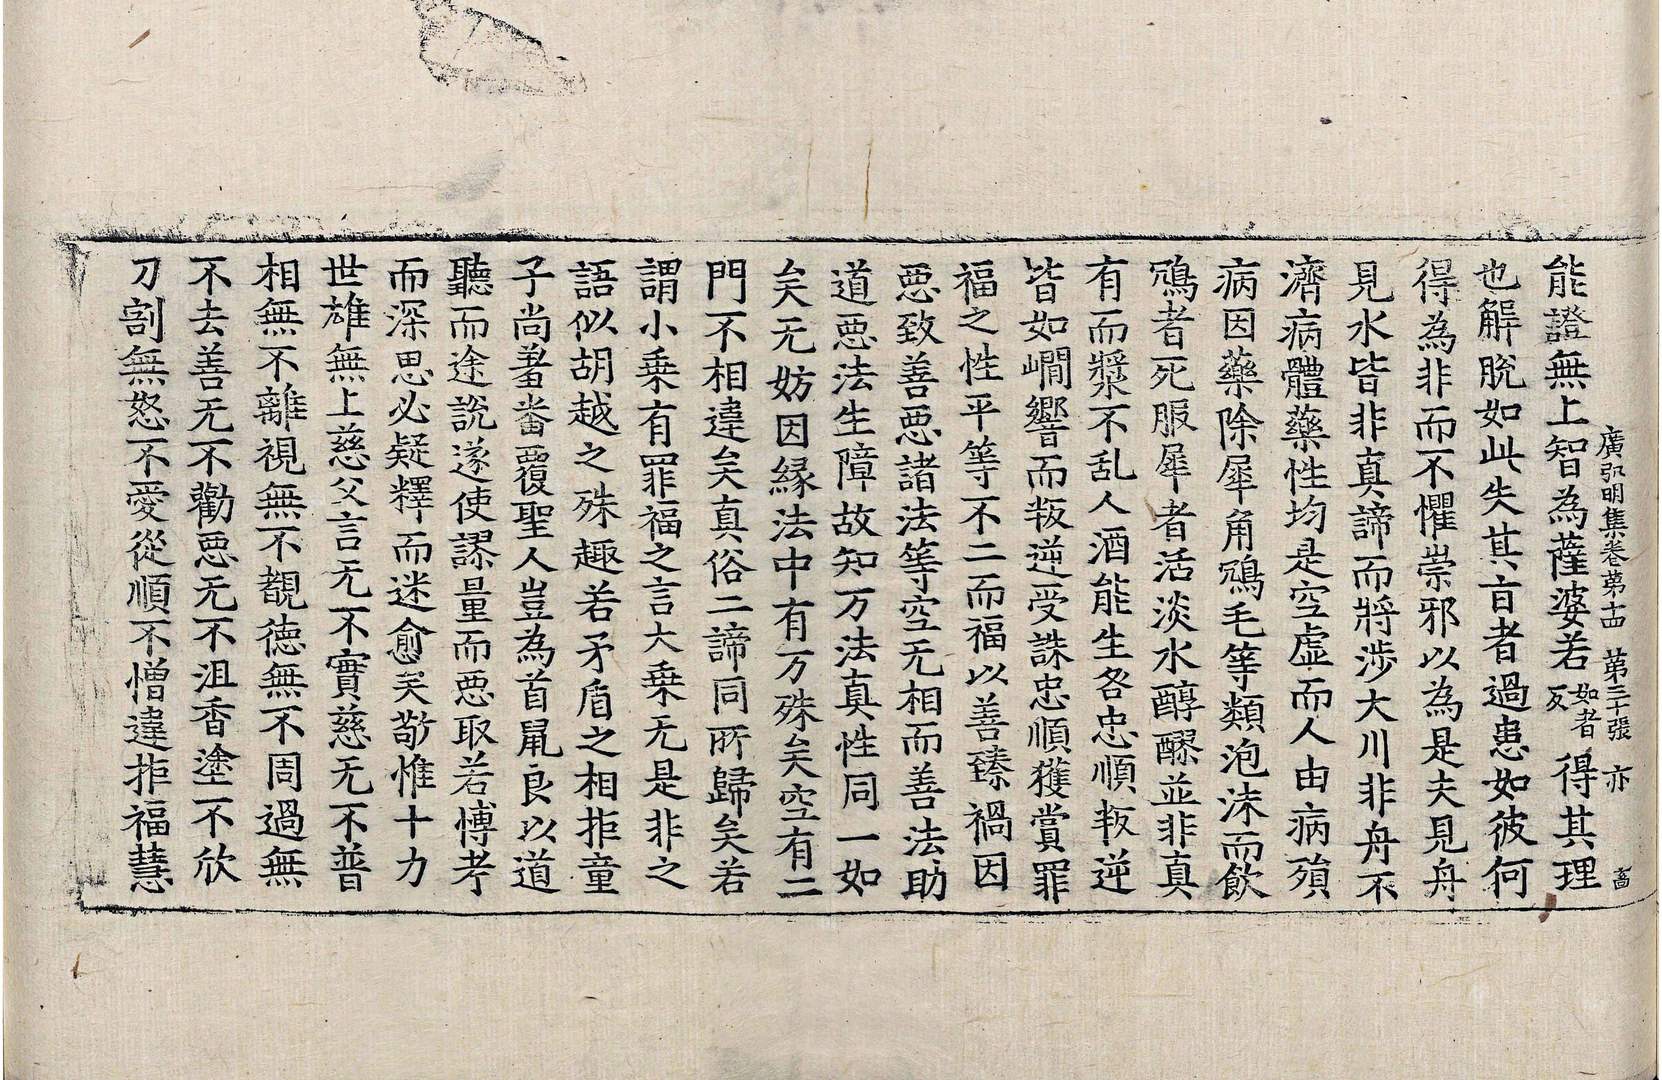 廣弘明集卷第十四 第三十張 亦
能證無上智為薩婆若如者反得其理
也解脫如此失其旨者過患如彼何
得為非而不懼崇邪以為是夫見舟
見水皆非真諦而將涉大川非舟不
濟病體藥性均是空虛而人由病殞
病因藥除犀角鴆毛等類泡沫而飲
鴆者死服犀者活淡水醇醪並非真
有而漿不乱人酒能生咎忠順叛逆
皆如嶰響而叛逆受誅忠順獲賞罪
福之性平等不二而福以善臻禍因
惡致善惡諸法等空无相而善法助
道惡法生障故知万法真性同一如
矣无妨因緣法中有万殊矣空有二
門不相違矣真俗二諦同所歸矣若
謂小乗有罪福之言大乗无是非之
語似胡越之殊趣若矛盾之相拒童
子尚羞番覆聖人豈為首鼠良以道
聽而途說遂使謬量而惡取若愽考
而深思必疑釋而迷愈矣敬惟十力
世雄無上慈父言无不實慈无不普
相無不離視無不覩徳無不周過無
不去善无不勸惡无不沮香塗不欣
刀割無怒不愛從順不憎違拒福慧